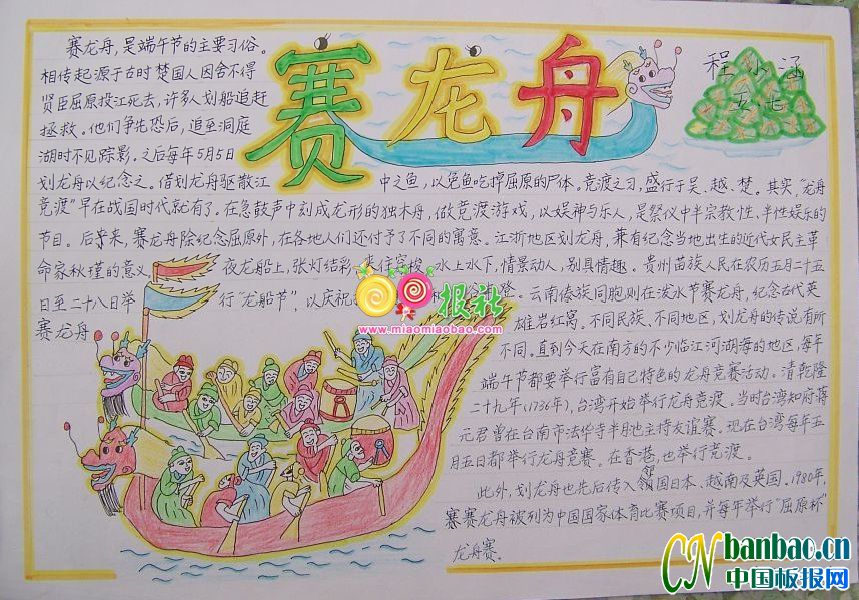 赛龙舟
程小涵
五七
赛龙舟，是端午节的主要习俗。
相传起源于古时楚国人因舍不得
贤臣屈原投江死去，许多人划船追赶
拯救。他们争先恐后，追至洞庭
湖时不见踪影。之后每年5月5日
划龙舟以纪念之。借划龙舟驱散江 中之鱼，以免鱼吃掉屈原的尸体。竞渡之习，盛行于吴、越、楚。其实，“龙舟
竞渡”早在战国时代就有了。在急鼓声中刻成龙形的独木舟，做竞渡游戏，以娱神与乐人，是祭仪中半宗教性、半性娱乐的
节目。后来，赛龙舟除纪念屈原外，在各地人们还付予了不同的寓意。江浙地区划龙舟，兼有纪念当地出生的近代女民主革
命家秋瑾的意义 夜龙船上，张灯结彩，来往穿梭，水上水下，情景动人，别具情趣。贵州苗族人民在农历五月二十五
日至二十八日举 行“龙船节”，以庆祝 登。云南傣族同胞则在泼水节赛龙舟，纪念古代英
赛龙舟 雄岩红窝。不同民族、不同地区，划龙舟的传说有所
不同。直到今天在南方的不少临江河湖海的地区，每年
端午节都要举行富有自己特色的龙舟竞赛活动。清乾隆
二十九年（1736年），台湾开始举行龙舟竞渡。当时台湾知府蒋
元君曾在台南市法华寺半月池主持友谊赛。现在台湾每年五
月五日都举行龙舟竞赛。在香港，也举行竞渡。
此外，划龙舟也先后传入领国日本、越南及英国。1980年，
赛赛龙舟被列为中国国家体育比赛项目，并每年举行“屈原杯”
龙舟赛。
报社
www.miaomiaobao.com
CNbanbao.cn
中国板报网